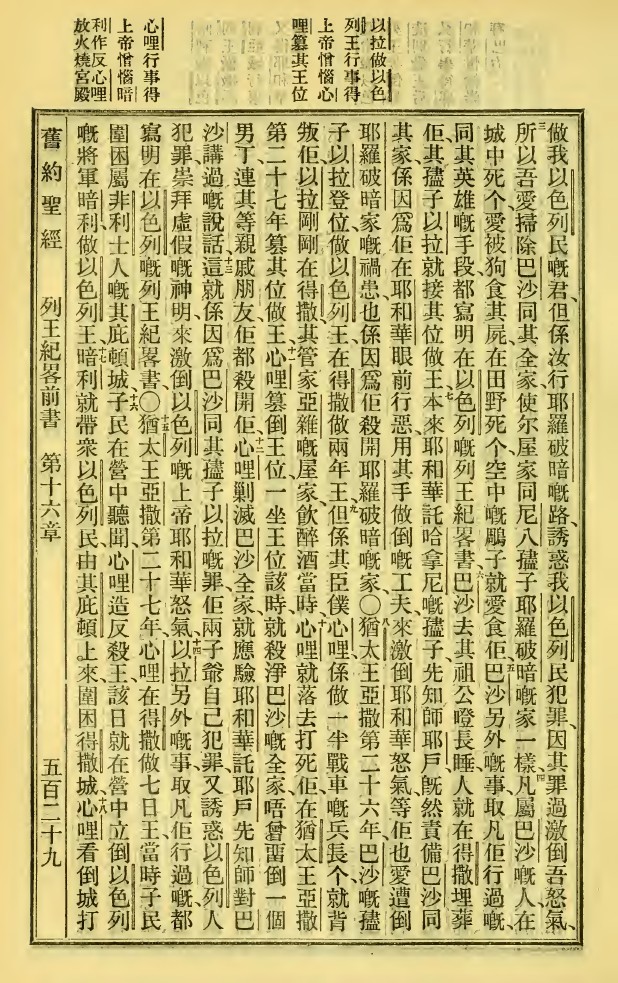 以拉做以色
列王行事得
上帝憎惱心
哩篡其王位
心哩行事得
上帝憎惱暗
利作反心哩
放火燒宮殿
做我以色列民嘅君、但係汝行耶羅破暗嘅路、誘惑我以色列民犯罪、因其罪過激倒吾怒氣、
三所以吾愛掃除巴沙同其全家、使尔屋家同尼八孻子耶羅破暗嘅家一樣、四凡屬巴沙嘅人、在
城中死个愛被狗食、其屍在田野死个、空中嘅鵰子就愛食佢、五巴沙另外嘅事、取凡佢行過嘅、
同其英雄嘅手段、都寫明在以色列嘅列王紀畧書、六巴沙去其祖公嗰長睡、人就在得撒埋葬
佢、其孻子以拉就接其位做王、七本來耶和華託哈拿尼嘅孻子先知師耶戶、旣然責備巴沙同
其家、係因爲佢在耶和華眼前行惡、用其手做倒嘅工夫、來激倒耶和華怒氣、等佢也愛遭倒
耶羅破暗家嘅禍患、也係因爲佢殺開耶羅破暗嘅家、〇八猶太王亞撒第二十六年、巴沙嘅孻
子以拉登位做以色列王、在得撒做兩年王、九但係其臣僕心哩、係做一半戰車嘅兵長、个就背
叛佢、以拉剛剛在得撒、其管家亞雜嘅屋家飲醉酒、當時十心哩就落去打死佢、在猶太王亞撒
第二十七年、篡其位做王、十一心哩篡倒王位、一坐王位該時、就殺淨巴沙嘅全家、唔曾畱倒一個
男丁、連其等親戚朋友、佢都殺開佢、十二心哩剿滅巴沙全家、就應驗耶和華託耶戶先知師、對巴
沙講過嘅說話、十三這就係因爲巴沙同其孻子以拉嘅罪、佢兩子爺自己犯罪、又誘惑以色列人
犯罪、崇拜虛假嘅神明、來激倒以色列嘅上帝耶和華怒氣、十四以拉另外嘅事、取凡佢行過嘅、都
寫明在以色列嘅列王紀畧書、〇十五猶太王亞撒第二十七年、心哩在得撒做七日王、當時子民
圍困屬非利士人嘅其庇頓城、十六子民在營中聽聞心哩造反殺王、該日就在營中立倒以色列
嘅將軍暗利做以色列王、十七暗利就帶衆以色列民、由其庇頓上來、圍困得撒城、十八心哩看倒城打
舊約聖經　列王紀畧前書　第十六章　五百二十九